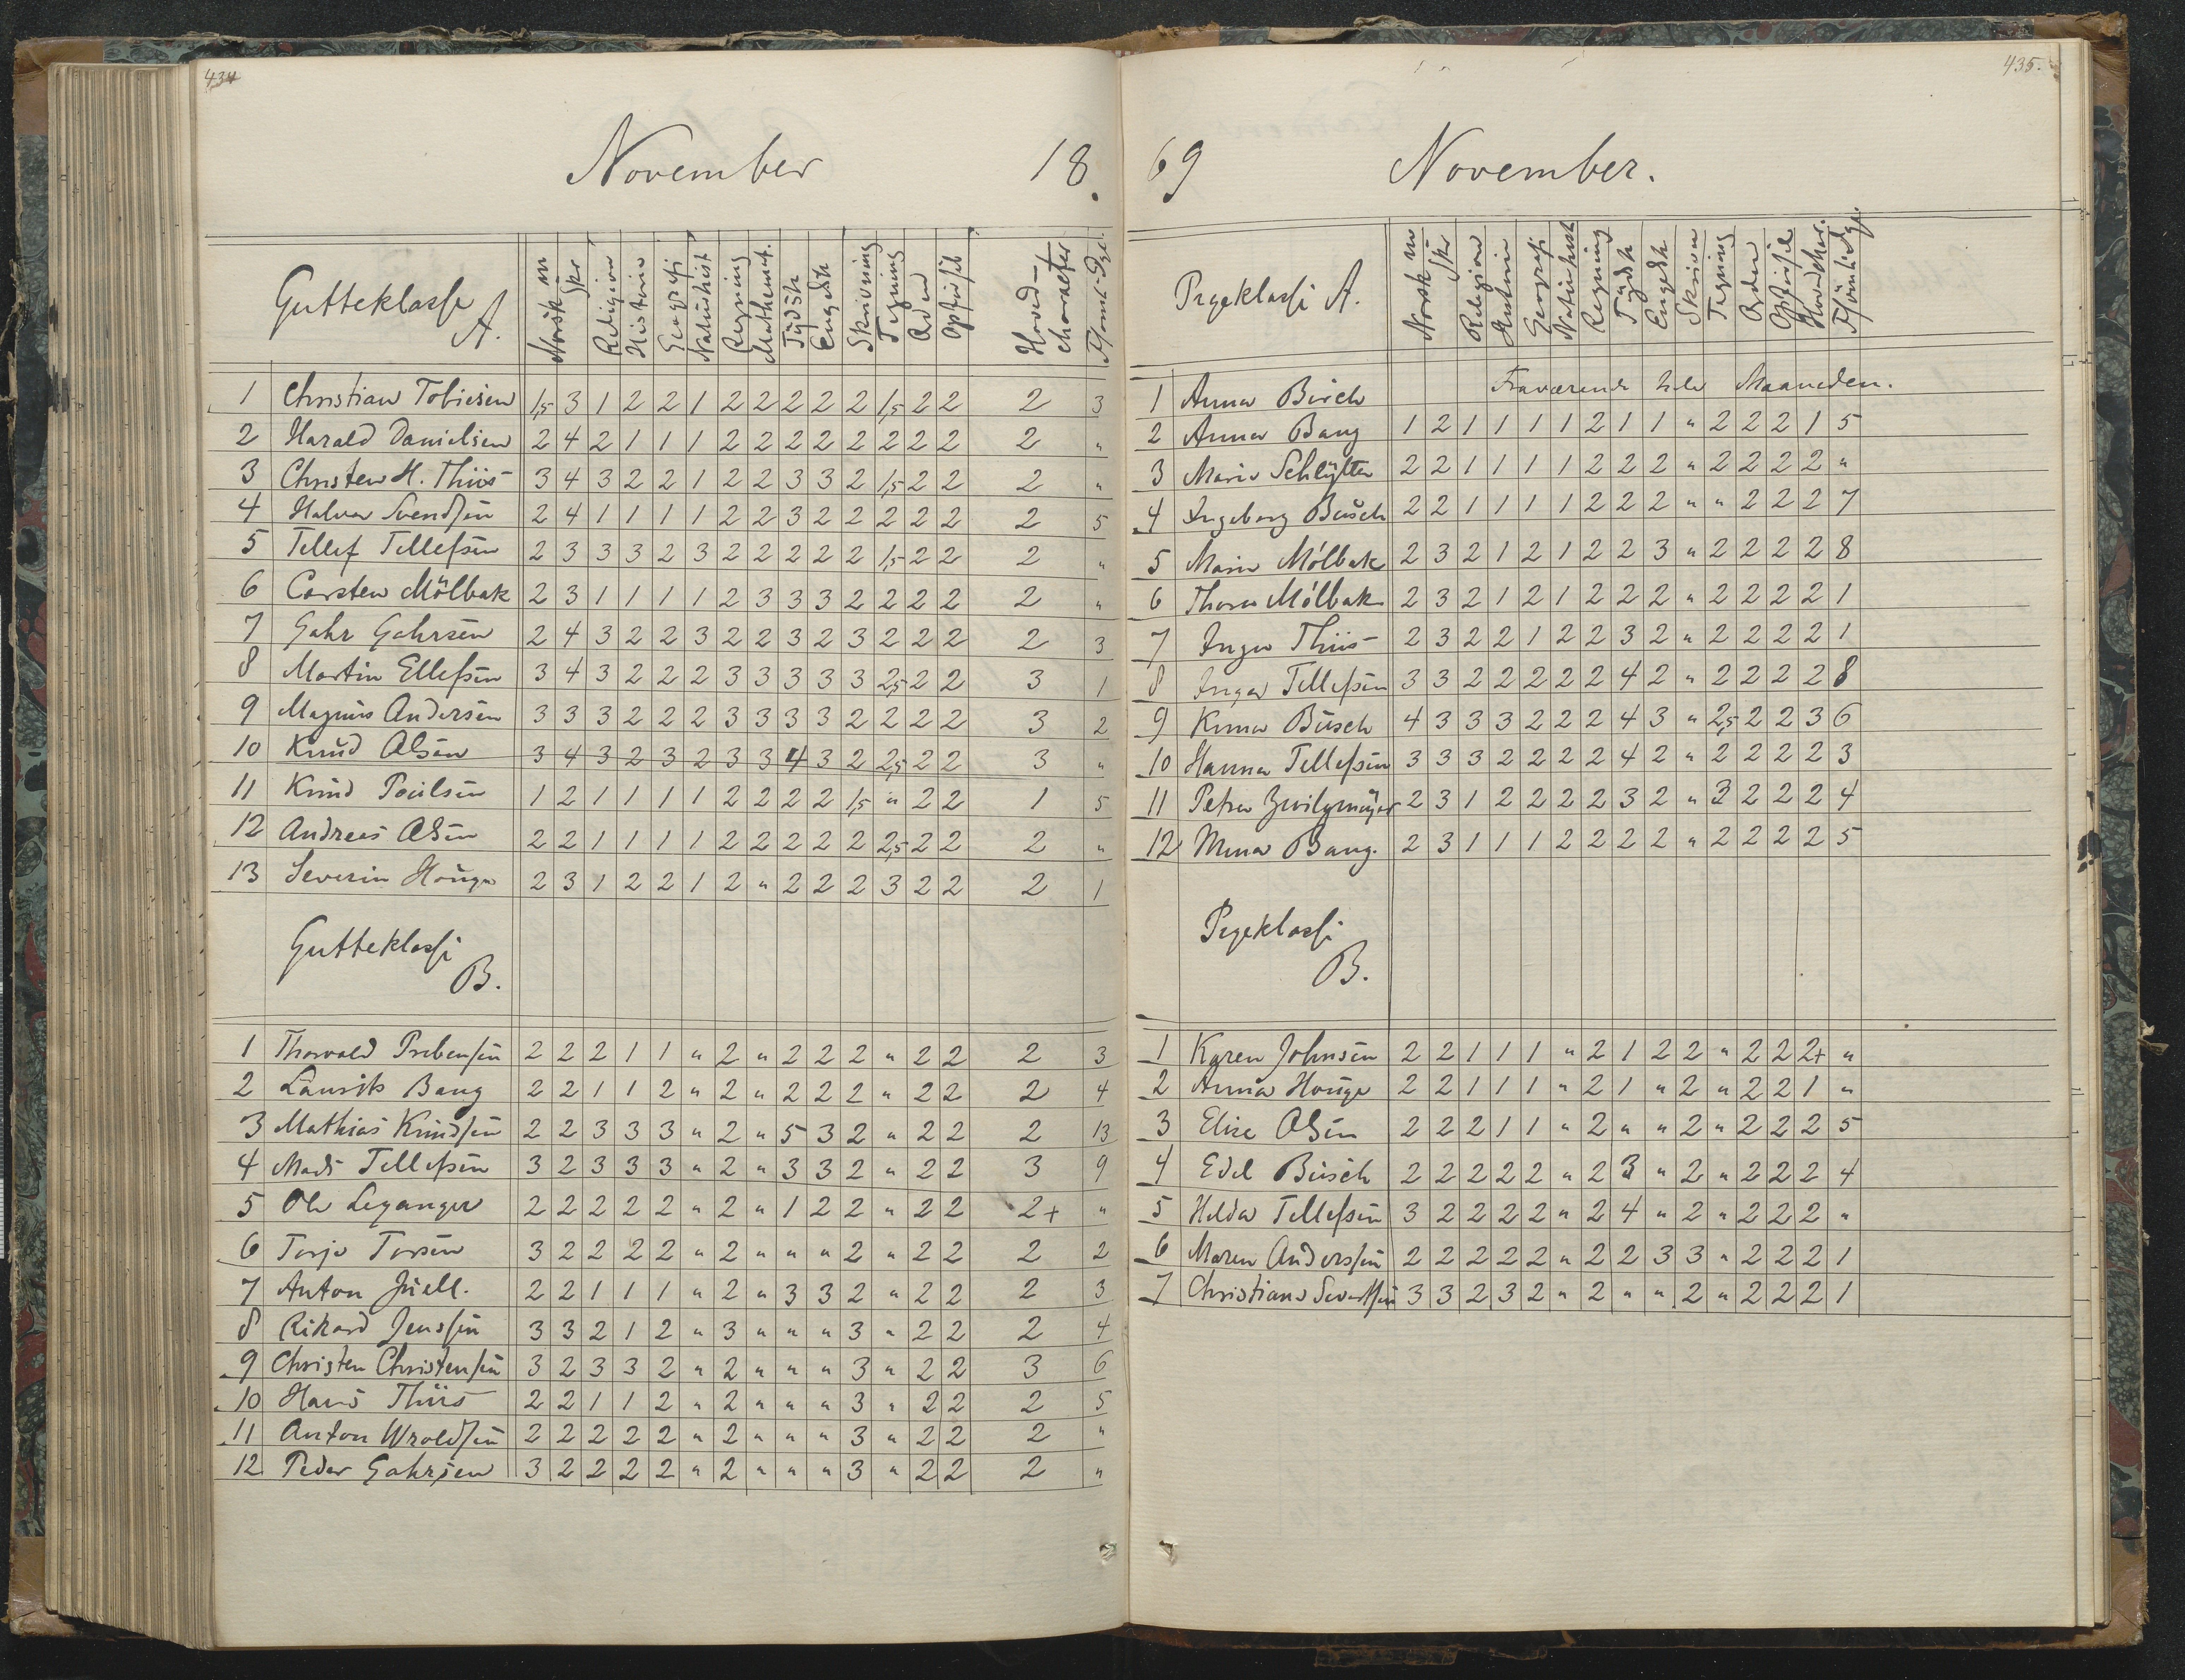 434
November 18.
Gutteklasse A. Norsk m Skr Religion Historie Geografi Naturhist Regning Mathemat. Tydsk Engelsk Skrivning Tegning Orden Opførsel Hoved-charakter Forsmt. Dge.
1 Christian Tobiesen 1,5 3 1 2 2 1 2 2 2 2 2 1,5 2 2 2 3
2 Harald Danielsen 2 4 2 1 1 1 2 2 2 2 2 2 2 2 2 "
3 Christen H. Thiis 3 4 3 2 2 1 2 2 3 3 2 1,5 2 2 2 "
4 Halvor Svendsen 2 4 1 1 1 1 2 2 3 2 2 2 2 2 2 5
5 Tellef Tellefsen 2 3 3 3 2 3 2 2 2 2 2 1,5 2 2 2 "
6 Carsten Mölbak 2 3 1 1 1 1 2 3 3 3 2 2 2 2 2 "
7 Gahr Gahrsen 2 4 3 2 2 3 2 2 3 2 3 2 2 2 2 3
8 Martin Ellefsen 3 4 3 2 2 2 3 3 3 3 3 2,5 2 2 3 1
9 Magnus Andersen 3 3 3 2 2 2 3 3 3 3 2 2 2 2 3 2
10 Knud Olsen 3 4 3 2 3 2 3 3 4 3 2 2,5 2 2 3 "
11 Knud Poulsen 1 2 1 1 1 1 2 2 2 2 1,5 " 2 2 1 5
12 Andreas Olsen 2 2 1 1 1 1 2 2 2 2 2 2,5 2 2 2 "
13 Severin Houge 2 3 1 2 2 1 2 " 2 2 2 3 2 2 2 1
Gutteklasse B.
1 Thorvald Prebensen 2 2 2 1 1 " 2 " 2 2 2 " 2 2 2 3
2 Laurits Bang 2 2 1 1 2 " 2 " 2 2 2 " 2 2 2 4
3 Mathias Knudsen 2 2 3 3 3 " 2 " 5 3 2 " 2 2 2 13
4 Mads Tellefsen 3 2 3 3 3 " 2 " 3 3 2 " 2 2 3 9
5 Ole Leganger 2 2 2 2 2 " 2 " 1 2 2 " 2 2 2+ "
6 Torje Torsen 3 2 2 2 2 " 2 " " " 2 " 2 2 2 2
7 Anton Juell. 2 2 1 1 1 " 2 " 3 3 2 " 2 2 2 3
8 Rikard Jenssen 3 3 2 1 2 " 3 " " " 3 " 2 2 2 4
9 Christen Christensen 3 2 3 3 2 " 2 " " " 3 " 2 2 3 6
10 Hans Thiis 2 2 1 1 2 " 2 " " " 3 " 2 2 2 5
11 Anton Wroldsen 2 2 2 2 2 " 2 " " " 3 " 2 2 2 "
12 Peder Gahrsen 3 2 2 2 2 " 2 " " " 3 " 2 2 2 "
435.
69 November.
Pigeklasse A. Norsk m Skr Religion Historie Geografi Naturhist Regning Tydsk Engelsk Skrivn Tegning Orden Opførsel Hovedchar. Forsømte Dge.
1 Anna Birch Fraværende hele Maaneden.
2 Anna Bang 1 2 1 1 1 1 2 1 1 " 2 2 2 1 5
3 Marie Schlytter 2 2 1 1 1 1 2 2 2 " 2 2 2 2 "
4 Ingeborg Busch 2 2 1 1 1 1 2 2 2 " " 2 2 2 7
5 Marie Mölbak 2 3 2 1 2 1 2 2 3 " 2 2 2 2 8
6 Thora Mölbak 2 3 2 1 2 1 2 2 2 " 2 2 2 2 1
7 Inger Thiis 2 3 2 2 1 2 2 3 2 " 2 2 2 2 1
8 Inger Tellefsen 3 3 2 2 2 2 2 4 2 " 2 2 2 2 8
9 Kuna Busch 4 3 3 3 2 2 2 4 3 " 2,5 2 2 3 6
10 Hanna Tellefsen 3 3 3 2 2 2 2 4 2 " 2 2 2 2 3
11 Petra Zwilgmeyer 2 3 1 2 2 2 2 3 2 " 3 2 2 2 4
12 Mina Bang. 2 3 1 1 1 2 2 2 2 " 2 2 2 2 5
Pigeklasse B.
1 Karen Johnsen 2 2 1 1 1 " 2 1 2 2 " 2 2 2+ "
2 Anna Houge 2 2 1 1 1 " 2 1 " 2 " 2 2 1 "
3 Elise Olsen 2 2 2 1 1 " 2 " " 2 " 2 2 2 5
4 Edel Busch 2 2 2 2 2 " 2 3 " 2 " 2 2 2 4
5 Helda Tellefsen 3 2 2 2 2 " 2 4 " 2 " 2 2 2 "
6 Maren Anderssen 2 2 2 2 2 " 2 2 3 3 " 2 2 2 1
7 Christiane Severtsen 3 3 2 3 2 " 2 " " 2 " 2 2 2 1